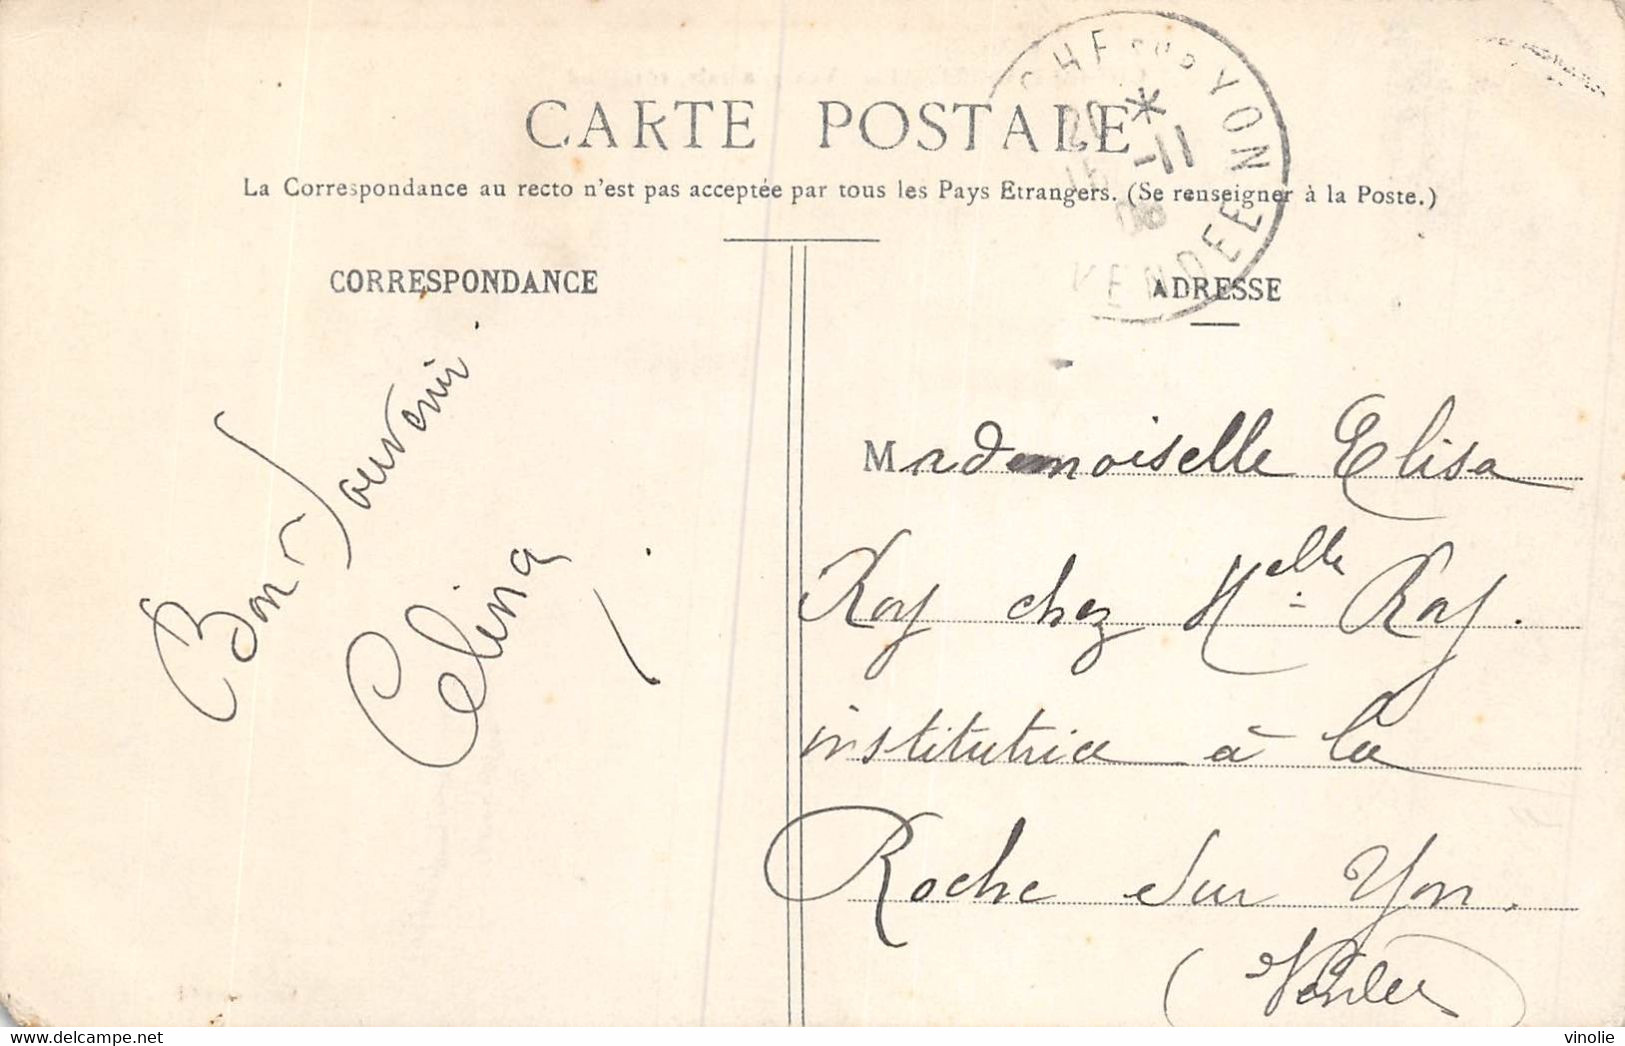 CARTE POSTALE
La Correspondance au recto n'est pas acceptée par tous les Pays Etrangers. (Se renseigner à la Poste.)
CORRESPONDANCE
ADRESSE
CHE SUR YON
20 *
15 -11
08
VENDEE
Bon Souvenir
Celina
Mademoiselle Elisa
Roy chez Melle Roy.
institutrice à la
Roche sur Yon.
(Vendée
delcampe.net
vinolie